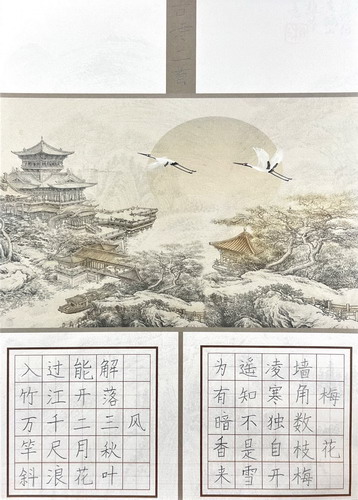 梅花
墙角数枝梅
凌寒独自开
遥知不是雪
为有暗香来
风
解落三秋叶
能开二月花
过江千尺浪
入竹万竿斜